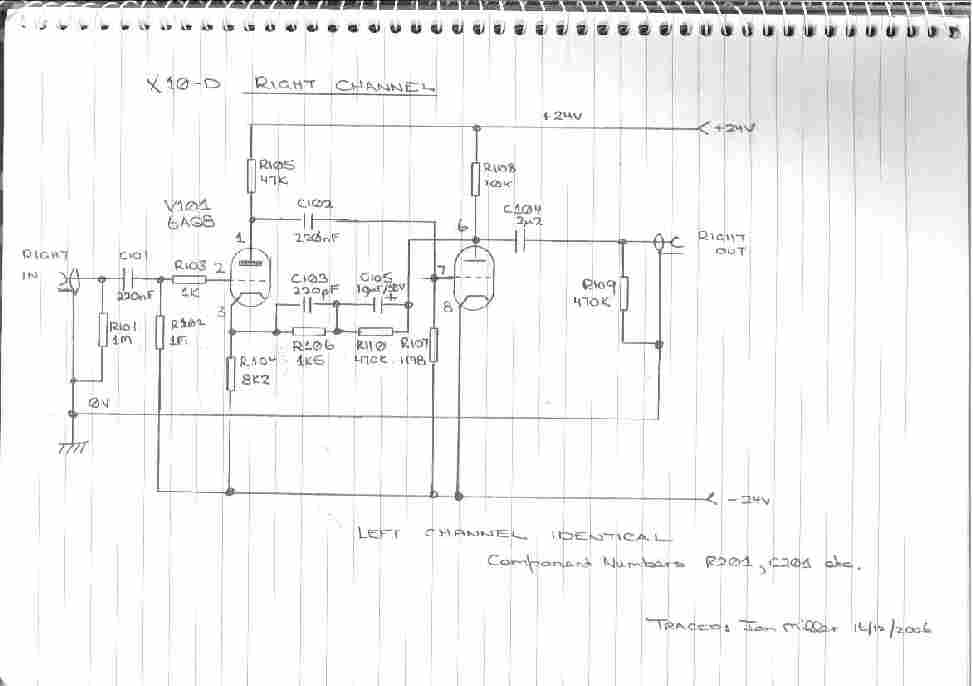 X10-D RIGHT CHANNEL
+24V
+24V
R105
47K
R108
100K
V101
C102
220nF
C104
2µ2
1
6
RIGHT
IN
C101
220nF
R103
1K
2
3
C103
220pF
C105
7
8
RIGHT
OUT
R109
470K
R101
1M
R102
1M
R104
8K2
R106
1K5
R110
470K
R107
0V
-24V
LEFT CHANNEL IDENTICAL
Component Numbers R201, C201 etc.
TRACED: Ian Miller 12/2006